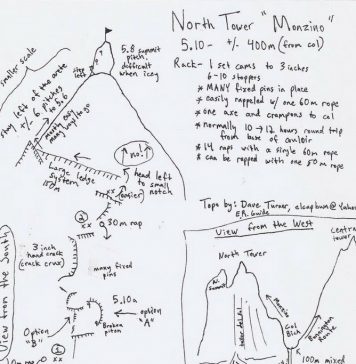 North Tower "Monzino"
5.10- +/- 400m (from col)
Rack- 1 set cams to 3 inches
6-10 stoppers
* MANY fixed pins in place
* easily rappeled w/ one 60m rope
* one axe and crampons to col
* normally 10 → 12 hours round trip
from base of couloir
* 14 raps with a single 60m rope
* can be rapped with one 50m rope
Topo by: Dave Turner, elcapbum@Yahoo
smaller scale
stay left of the arete
+/- 6 pitches
to 5.6
mostly easy
step left
5.8 summit
pitch
difficult
when icey
no!
large ledge
system
head left
to small
notch
(easier)
2
xx
30m rap
3 inch
hand crack
(crack crux)
many fixed
pins
5.10a
option
"A"
Broken
piton
Option
"B"
1
xx
View from the South
View from the West
North Tower
N. Summit
Monzino
Col
Bich
Central
tower
Bonington
Route
100m mixed